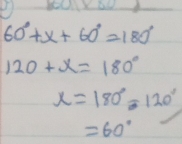 60°+x+60°=180°
120+x=180°
x=180°-120°
=60°